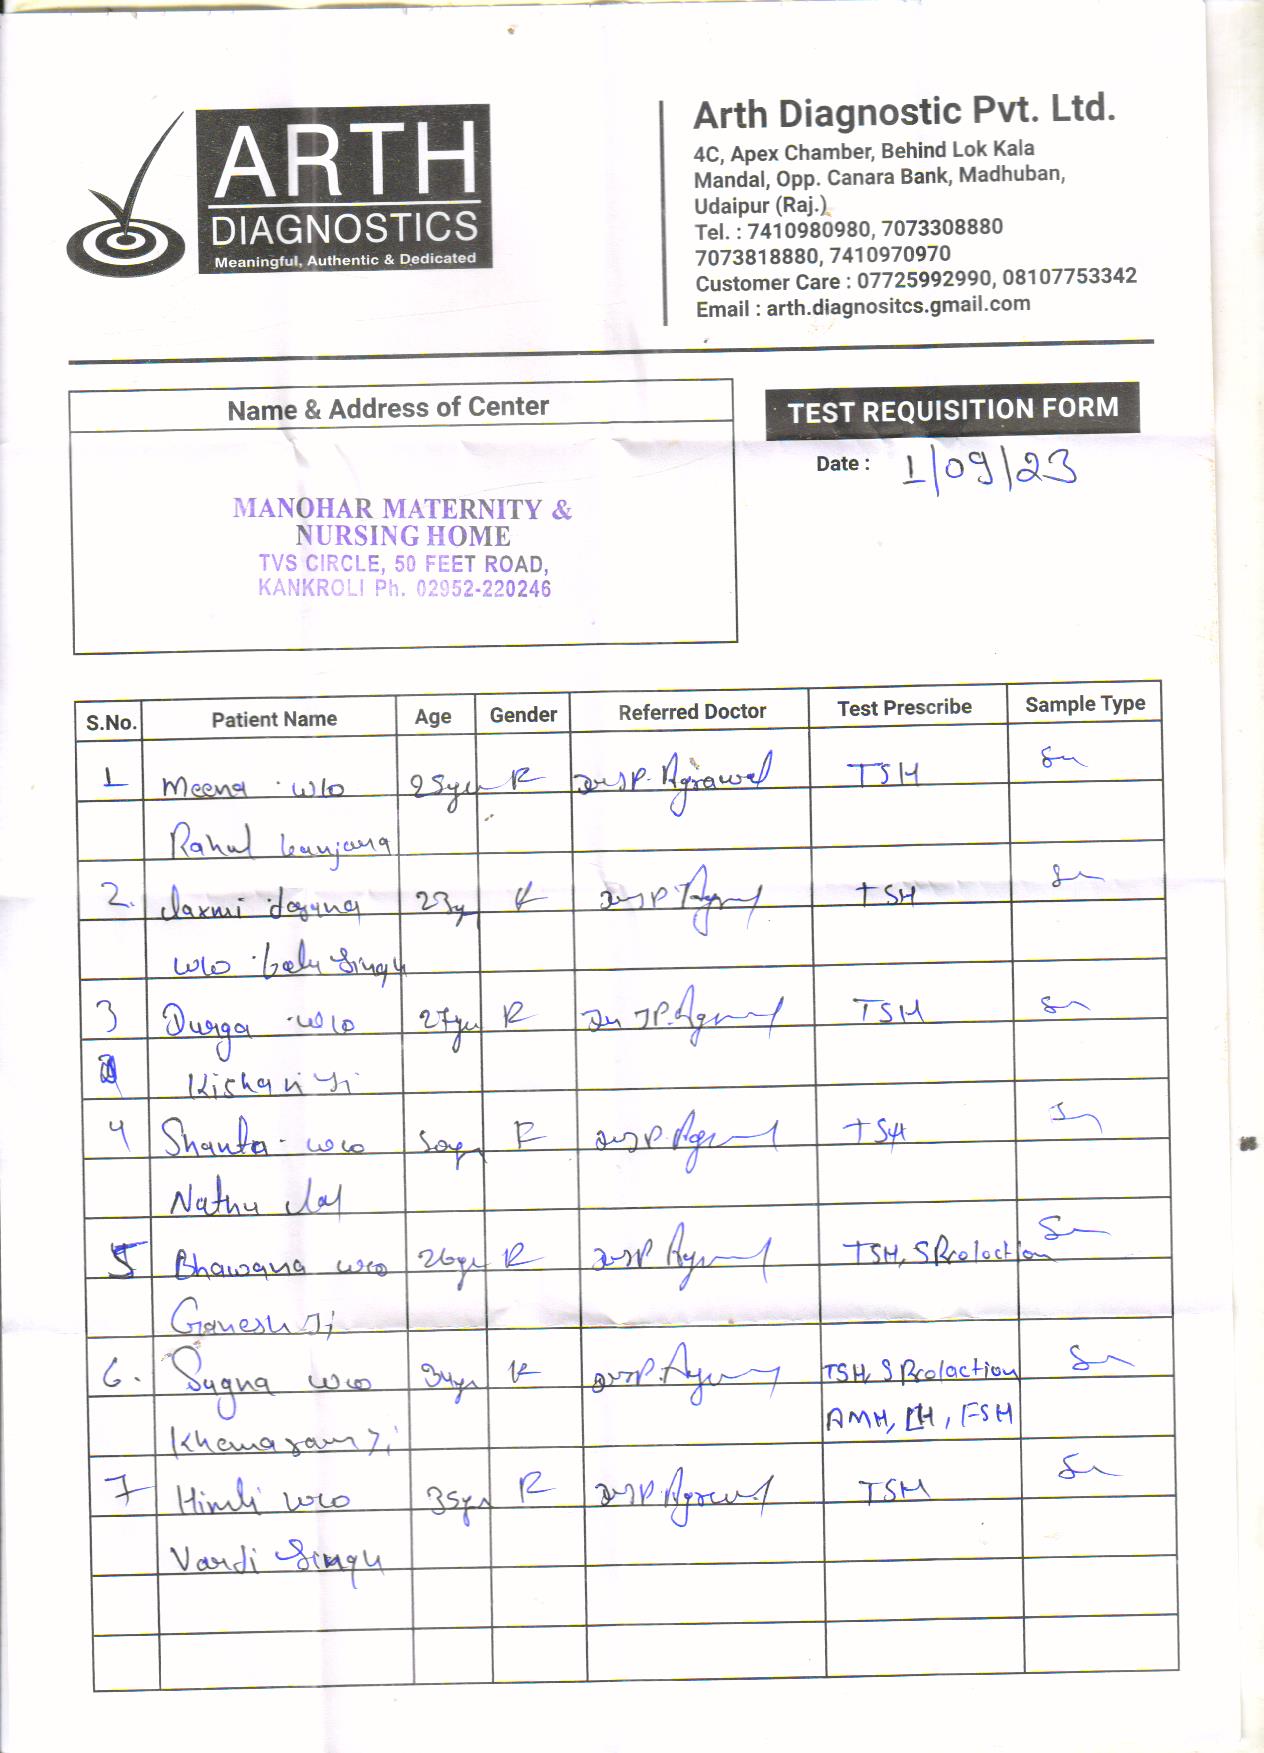 ARTH
DIAGNOSTICS
Meaningful, Authentic & Dedicated
Arth Diagnostic Pvt. Ltd.
4C, Apex Chamber, Behind Lok Kala
Mandal, Opp. Canara Bank, Madhuban,
Udaipur (Raj.)
Tel. : 7410980980, 7073308880
7073818880, 7410970970
Customer Care : 07725992990, 08107753342
Email : arth.diagnositcs.gmail.com
Name & Address of Center
MANOHAR MATERNITY &
NURSING HOME
TVS CIRCLE, 50 FEET ROAD,
KANKROLI Ph. 02952-220246
TEST REQUISITION FORM
Date : 1/09/23
S.No. Patient Name Age Gender Referred Doctor Test Prescribe Sample Type
1 Meena w/o 25yr F Dr JP. Agrawal TSH
Rahul
2. Laxmi 23y F TSH
w/o Singh
3 Durga w/o 27yr F Dr JP. TSH
Kishan Ji
4 Shanta w/o F TSH
Nathu Lal
5 Bhawana w/o 26yr F TSH, S Prolaction
Ganesh Ji
6. Sugna w/o 34yr F TSH, S Prolaction
Khemaram Ji AMH, LH, FSH
7 w/o 35yr F TSH
Vardi Singh